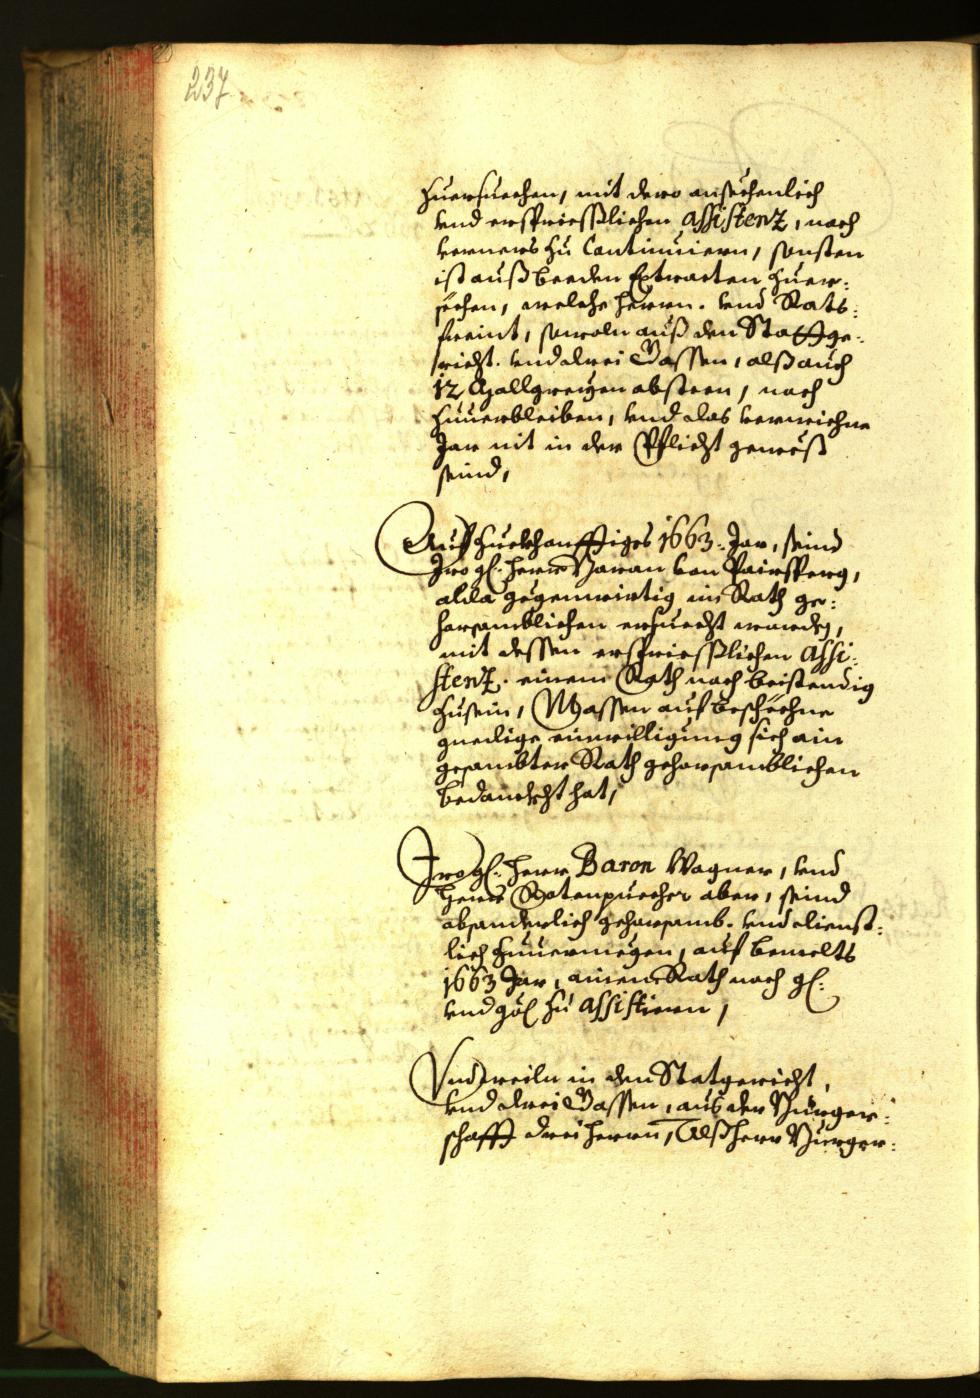 237
zuersuechen, mit dero ansechenlich
vnd erspriesslichen assistenz, noch
verners zu Continuiern, sonsten
ist auß beeden Extracten zuer:
sechen, welche Herrn. vnd Rats:
freint, sowoln auß den Stattge:
richt. vnd drei Gassen, alß auch
12 Mallgreyen absteen, noch
zuuerbleiben, vnd das verwichne
Jar nit in der Pflicht gewest
seind,
Auf zuekhonfftiges 1663. Jar, seind
Iro gl. Herr Baran von Pairsperg,
alda gegenwirtig im Rath ge:
horsamblichen ersuecht worden,
mit dessen erspriesslichen assi:
stenz. einem Rath noch beistendig
zusein, Massen auf beschechne
gnedige einwilligung sich ain
gesambter Rath gehorsamblichen
bedanckht hat,
Iro gl. Herr Baron Wagner, vnd
Herr Rotenpuecher aber, seind
absonderlich gehorsamb. vnd dienst:
lich zuuermögen, auf bemelts
1663 Jar, ainem Rath noch gl:
vnd göl zu assistiern,
Vnd weiln in den Statgericht,
vnd drei Gassen, aus der Burger:
schafft drei Herrn, Alß Herr Burger: